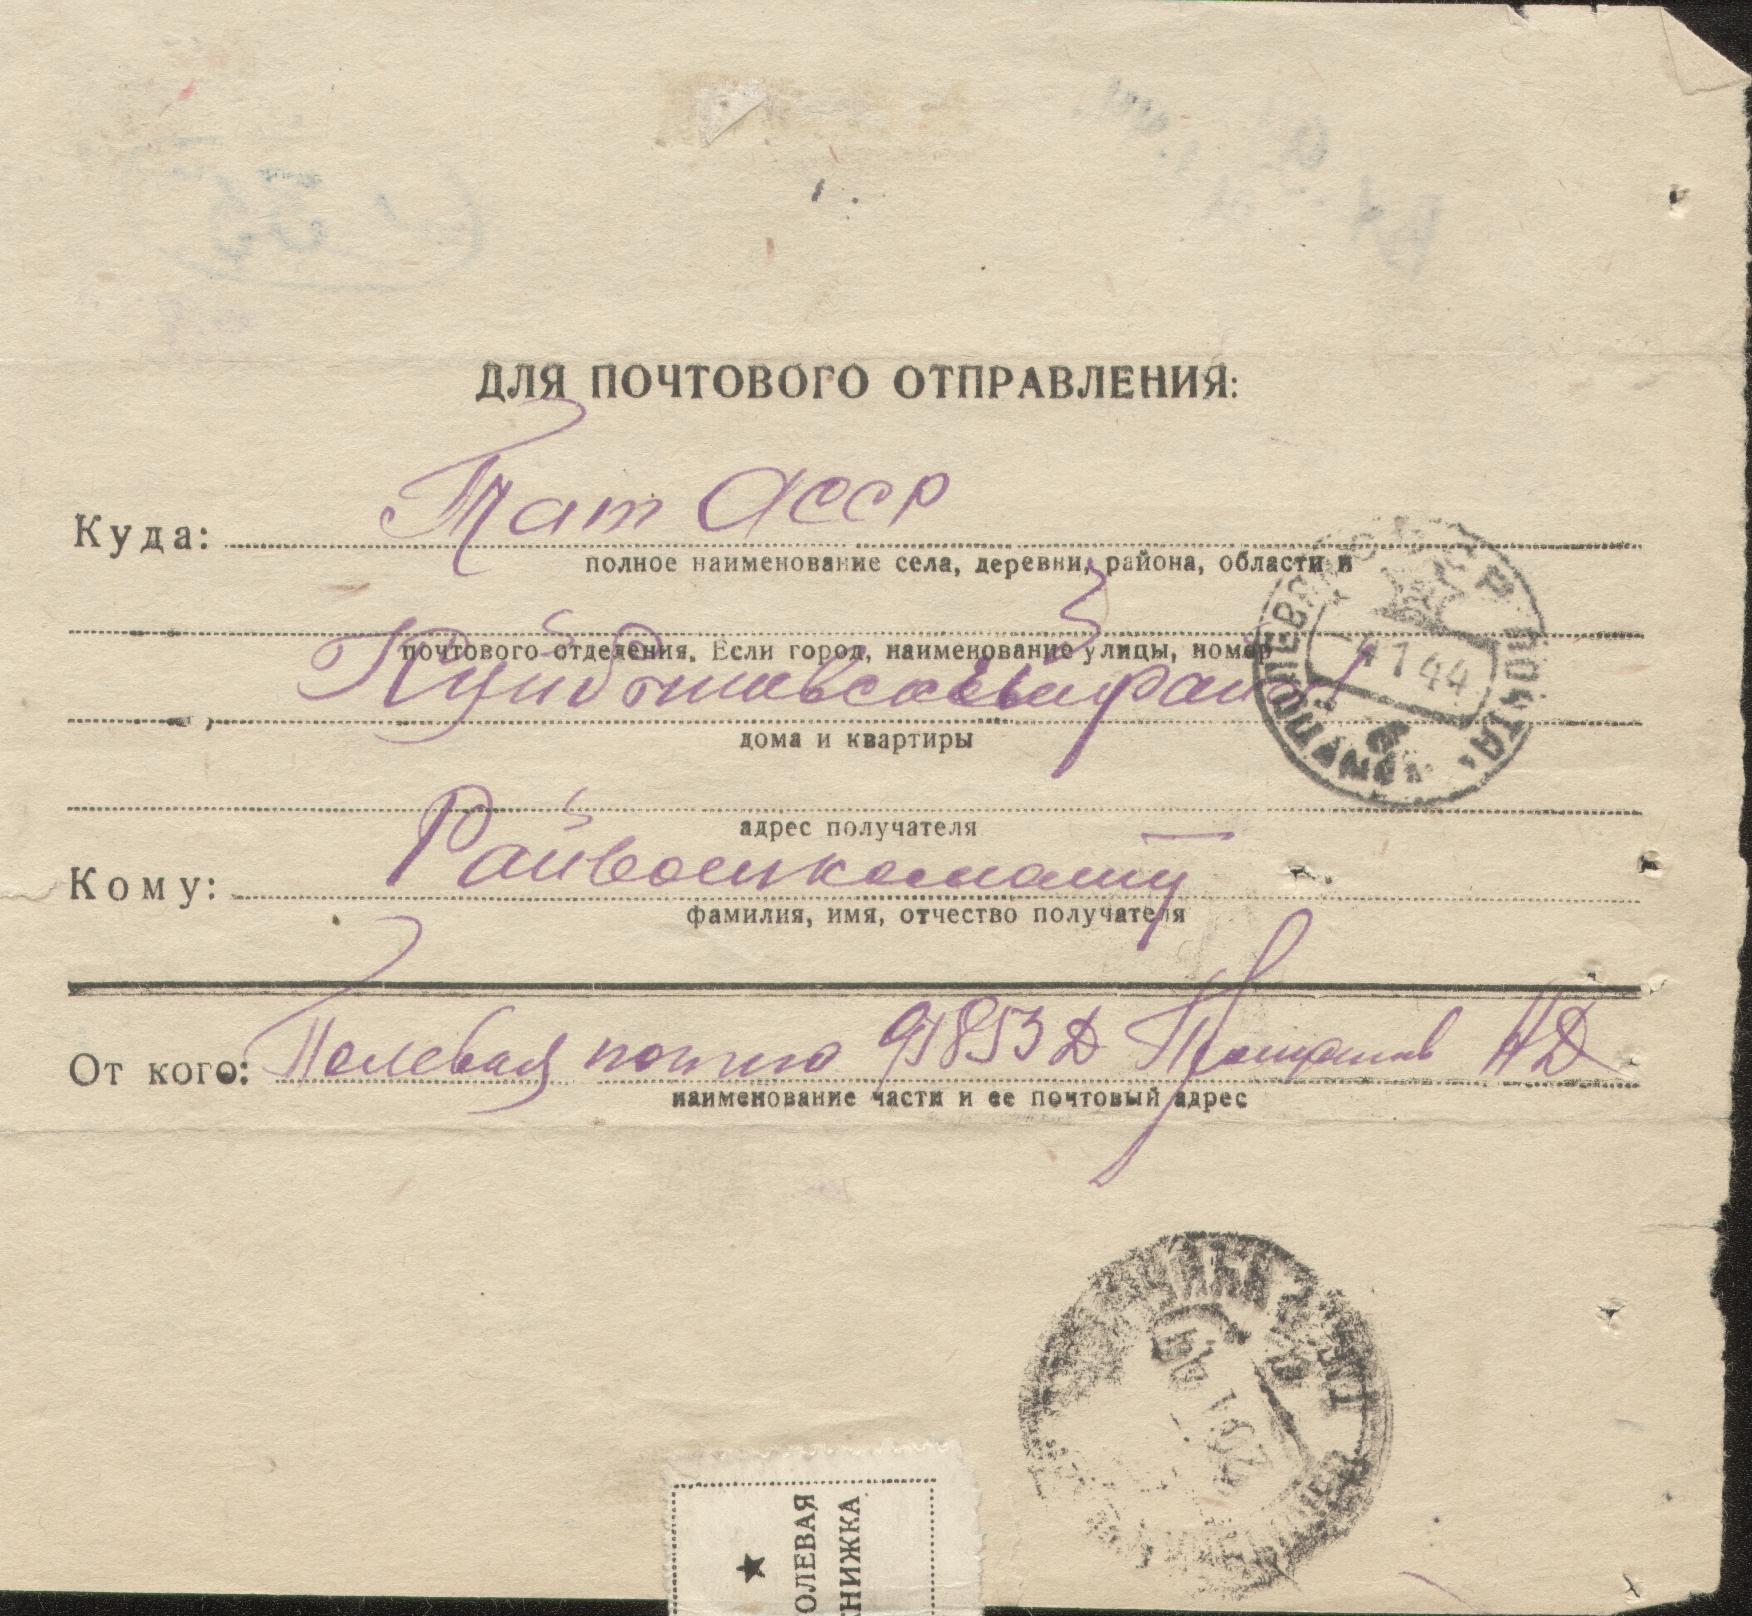 ДЛЯ ПОЧТОВОГО ОТПРАВЛЕНИЯ:
Куда: Тат АССР
полное наименование села, деревни, района, области и
почтового отделения. Если город, наименование улицы, номер
Куйбышевский район
дома и квартиры
адрес получателя
Кому: Райвоенкомату
фамилия, имя, отчество получателя
От кого: Полевая почта Д НД
наименование части и ее почтовый адрес
ПОЧТА
44
ОЛЕВАЯ
НИЖКА